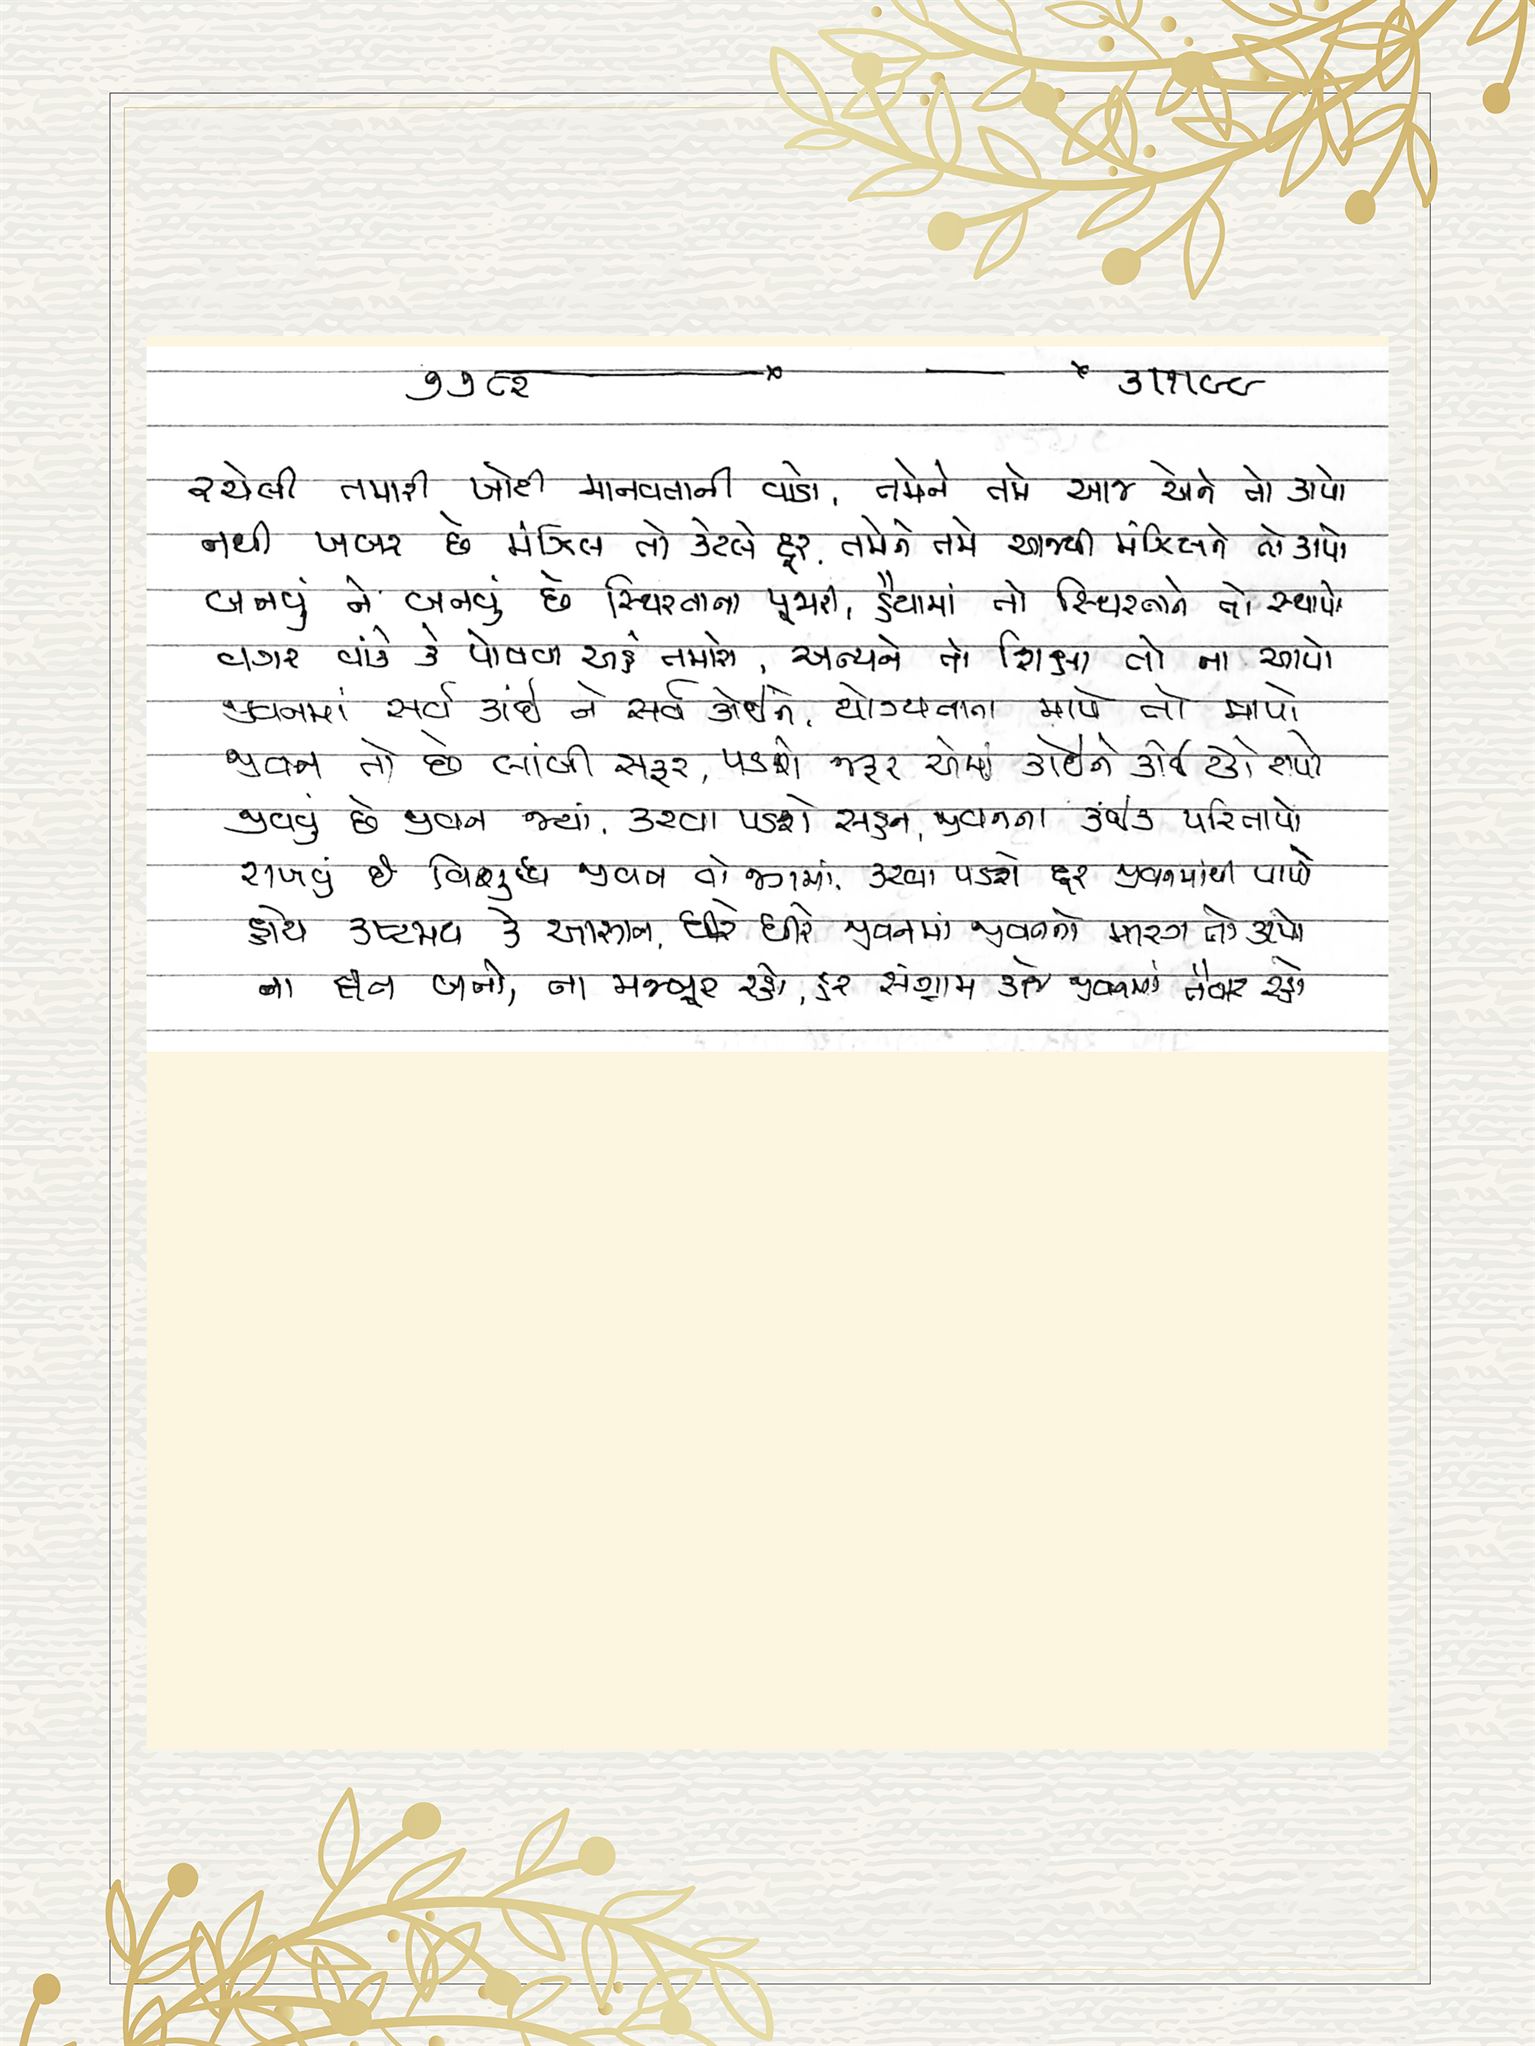 ૭૭૮૨ ૩।૧।૯૮
રચેલી તમારી ખોટી માનવતાની વાડો, તમેને તમે આજ એને તો કાપો
નથી ખબર છે મંઝિલ તો કેટલે દૂર, તમેને તમે આજથી મંઝિલને તો કાપો
બનવું ને બનવું છે સ્થિરતાના પૂજારી, હૈયામાં તો સ્થિરતાને તો સ્થાપો
વગર વાંકે કે પોષવા અહં તમારો, અન્યને તો શિક્ષા તો ના આપો
જીવનમાં સર્વ કાંઈ ને સર્વ કોઈને, યોગ્યતાના માપે તો માપો
જીવન તો છે લાંબી સફર, પડશે જરૂર એમાં કોઈને કોઈ ટેકો
જીવવું છે જીવન જ્યાં, કરવા પડશે સહન, જીવનના કંઈક પરિતાપો
રાખવું છે વિશુદ્ધ જીવન તો જગમાં, કરવા પડશે દૂર જીવનમાંથી પાપો
હોયે કષ્ટમય કે આસાન, ધીરે ધીરે જીવનમાં જીવનનો મારગ તો કાપો
ના દીન બનો, ના મજબૂર રહો, હર સંગ્રામ કાજે જીવનમાં તૈયાર રહો